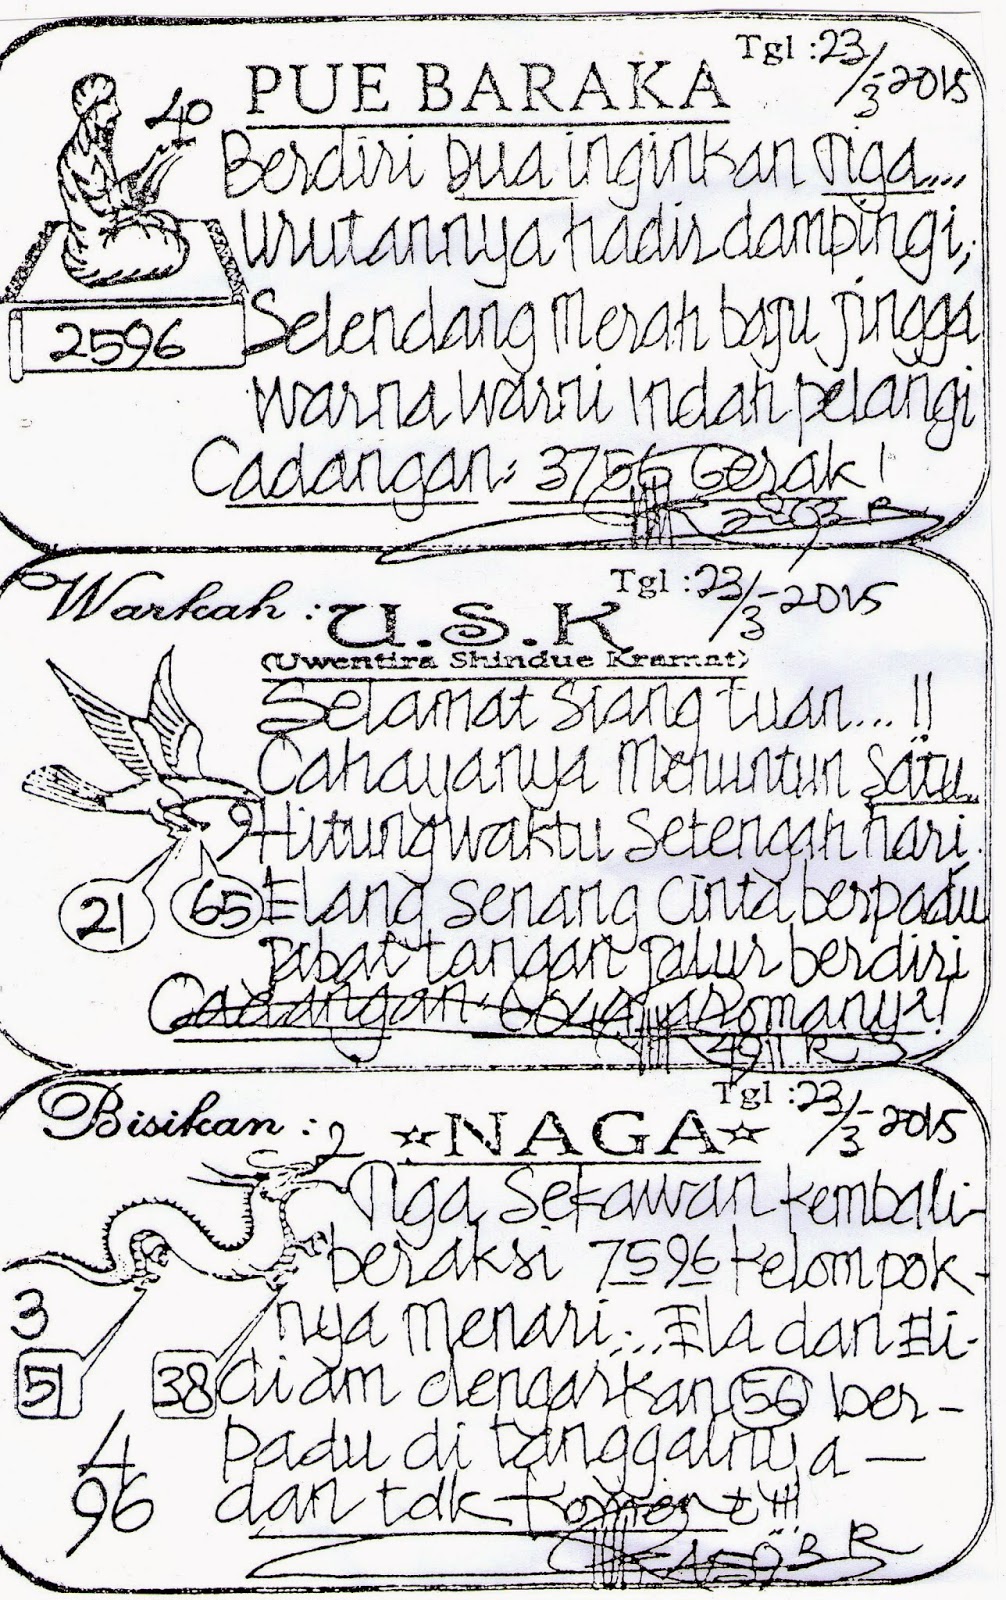 Tgl : 23/-3-2015
PUE BARAKA
40
Berdiri Dua inginkan Tiga...
Urutannya hadir dampingi,
Selendang merah baju jingga
2596
Warna warni indah pelangi
Cadangan: 3756 Gerak!
Warkah : U.S.K
Tgl : 23/-3-2015
(Uwentira Shindue Kramat)
Selamat Siang tuan...!!
Cahayanya menuntun Satu..
9
Hitung waktu setengah hari.
21 65
Elang senang cinta berpadu
Jabat tangan jalur berdiri
Cadangan: 6044 aromanya!
4911 R
Bisikan : ☆NAGA☆
Tgl : 23/-3-2015
2
Tiga Sekawan kembali-
beraksi 7596 kelompok-
3
nya menari... Ela dan Eli-
51 38
diam dengarkan 56 ber-
4
padu di tanggalnya —
96
dan tdk koment!!!